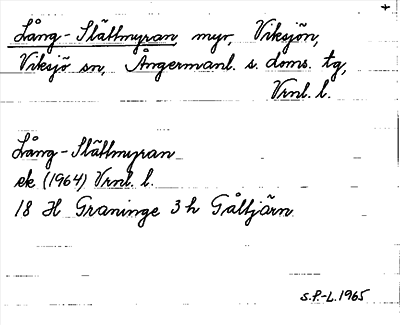 Lång-Slättmyran, myr, Viksjön,
Viksjö sn, Ångermanl. s. doms. tg,
Vrnl. l.
Lång-Slättmyran
ek (1964) Vrnl. l.
18 H Graninge 3 h Gåltjärn
S.P.-L. 1965